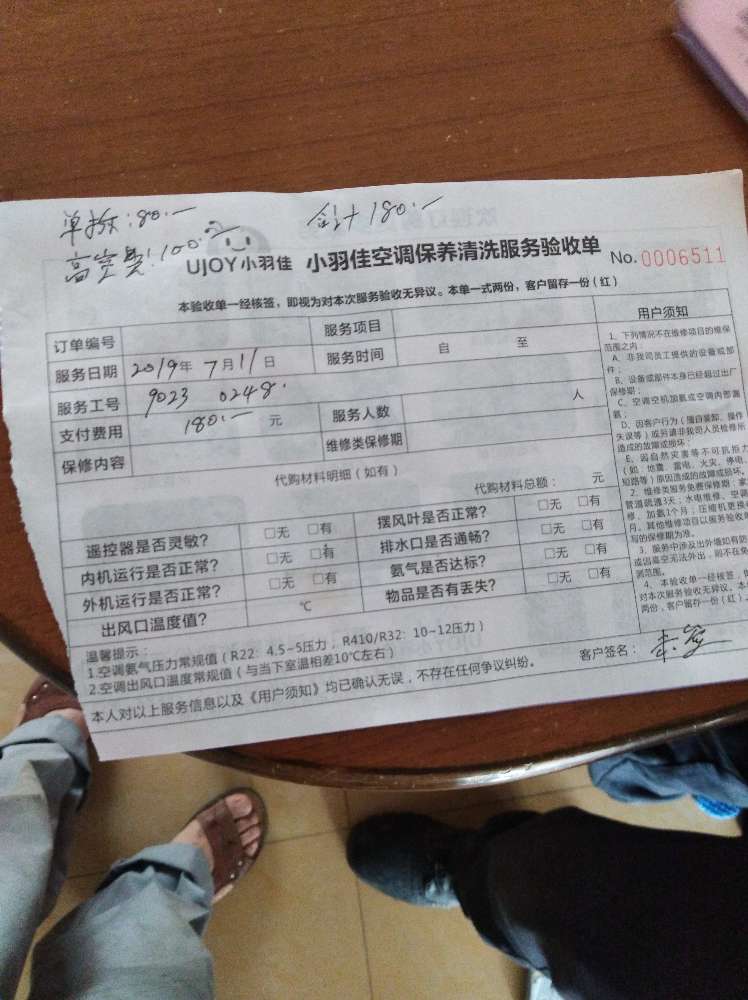 单拆:80.— 合计180.—
高空费:100.—
UJOY小羽佳 小羽佳空调保养清洗服务验收单 No.0006511
本验收单一经核签，即视为对本次服务验收无异议。本单一式两份，客户留存一份（红）
订单编号 服务项目
服务日期 2019年7月11日 服务时间 自 至
服务工号 9023 0248.
支付费用 180.— 元 服务人数 人
保修内容 维修类保修期
代购材料明细（如有）
代购材料总额： 元
遥控器是否灵敏？ □无 □有 摆风叶是否正常？ □无 □有
内机运行是否正常？ □无 □有 排水口是否通畅？ □无 □有
外机运行是否正常？ □无 □有 氨气是否达标？ □无 □有
出风口温度值？ ℃ 物品是否有丢失？ □无 □有
温馨提示：
1.空调氨气压力常规值（R22：4.5~5压力； R410/R32：10~12压力）
2.空调出风口温度常规值（与当下室温相差10℃左右）
本人对以上服务信息以及《用户须知》均已确认无误，不存在任何争议纠纷。
客户签名：
用户须知
1、下列情况不在维修项目的维保
范围之内：
A、非我司员工提供的设备或部
件；
B、设备或部件本身已经超过出厂
保修期；
C、空调空机加氨或空调内部漏
氨；
D、因客户行为（擅自装卸、操作
失误等）或另请非我司人员检修所
造成的故障或损坏；
E、因自然灾害等不可抗拒力
（如：地震、雷电、火灾、停电、
短路等）原因造成的故障或损坏。
2、维修类服务免费保修期：家
管道疏通3天；水电维修、空调
修、加氨1个月；压缩机更换
月。其他维修项目以服务验收单
写的保修期为准。
3、服务中涉及出外墙如有防
或因高空无法外出，则不在免
测范围。
4、本验收单一经核签，即
对本次服务验收无异议。本
两份，客户留存一份（红）